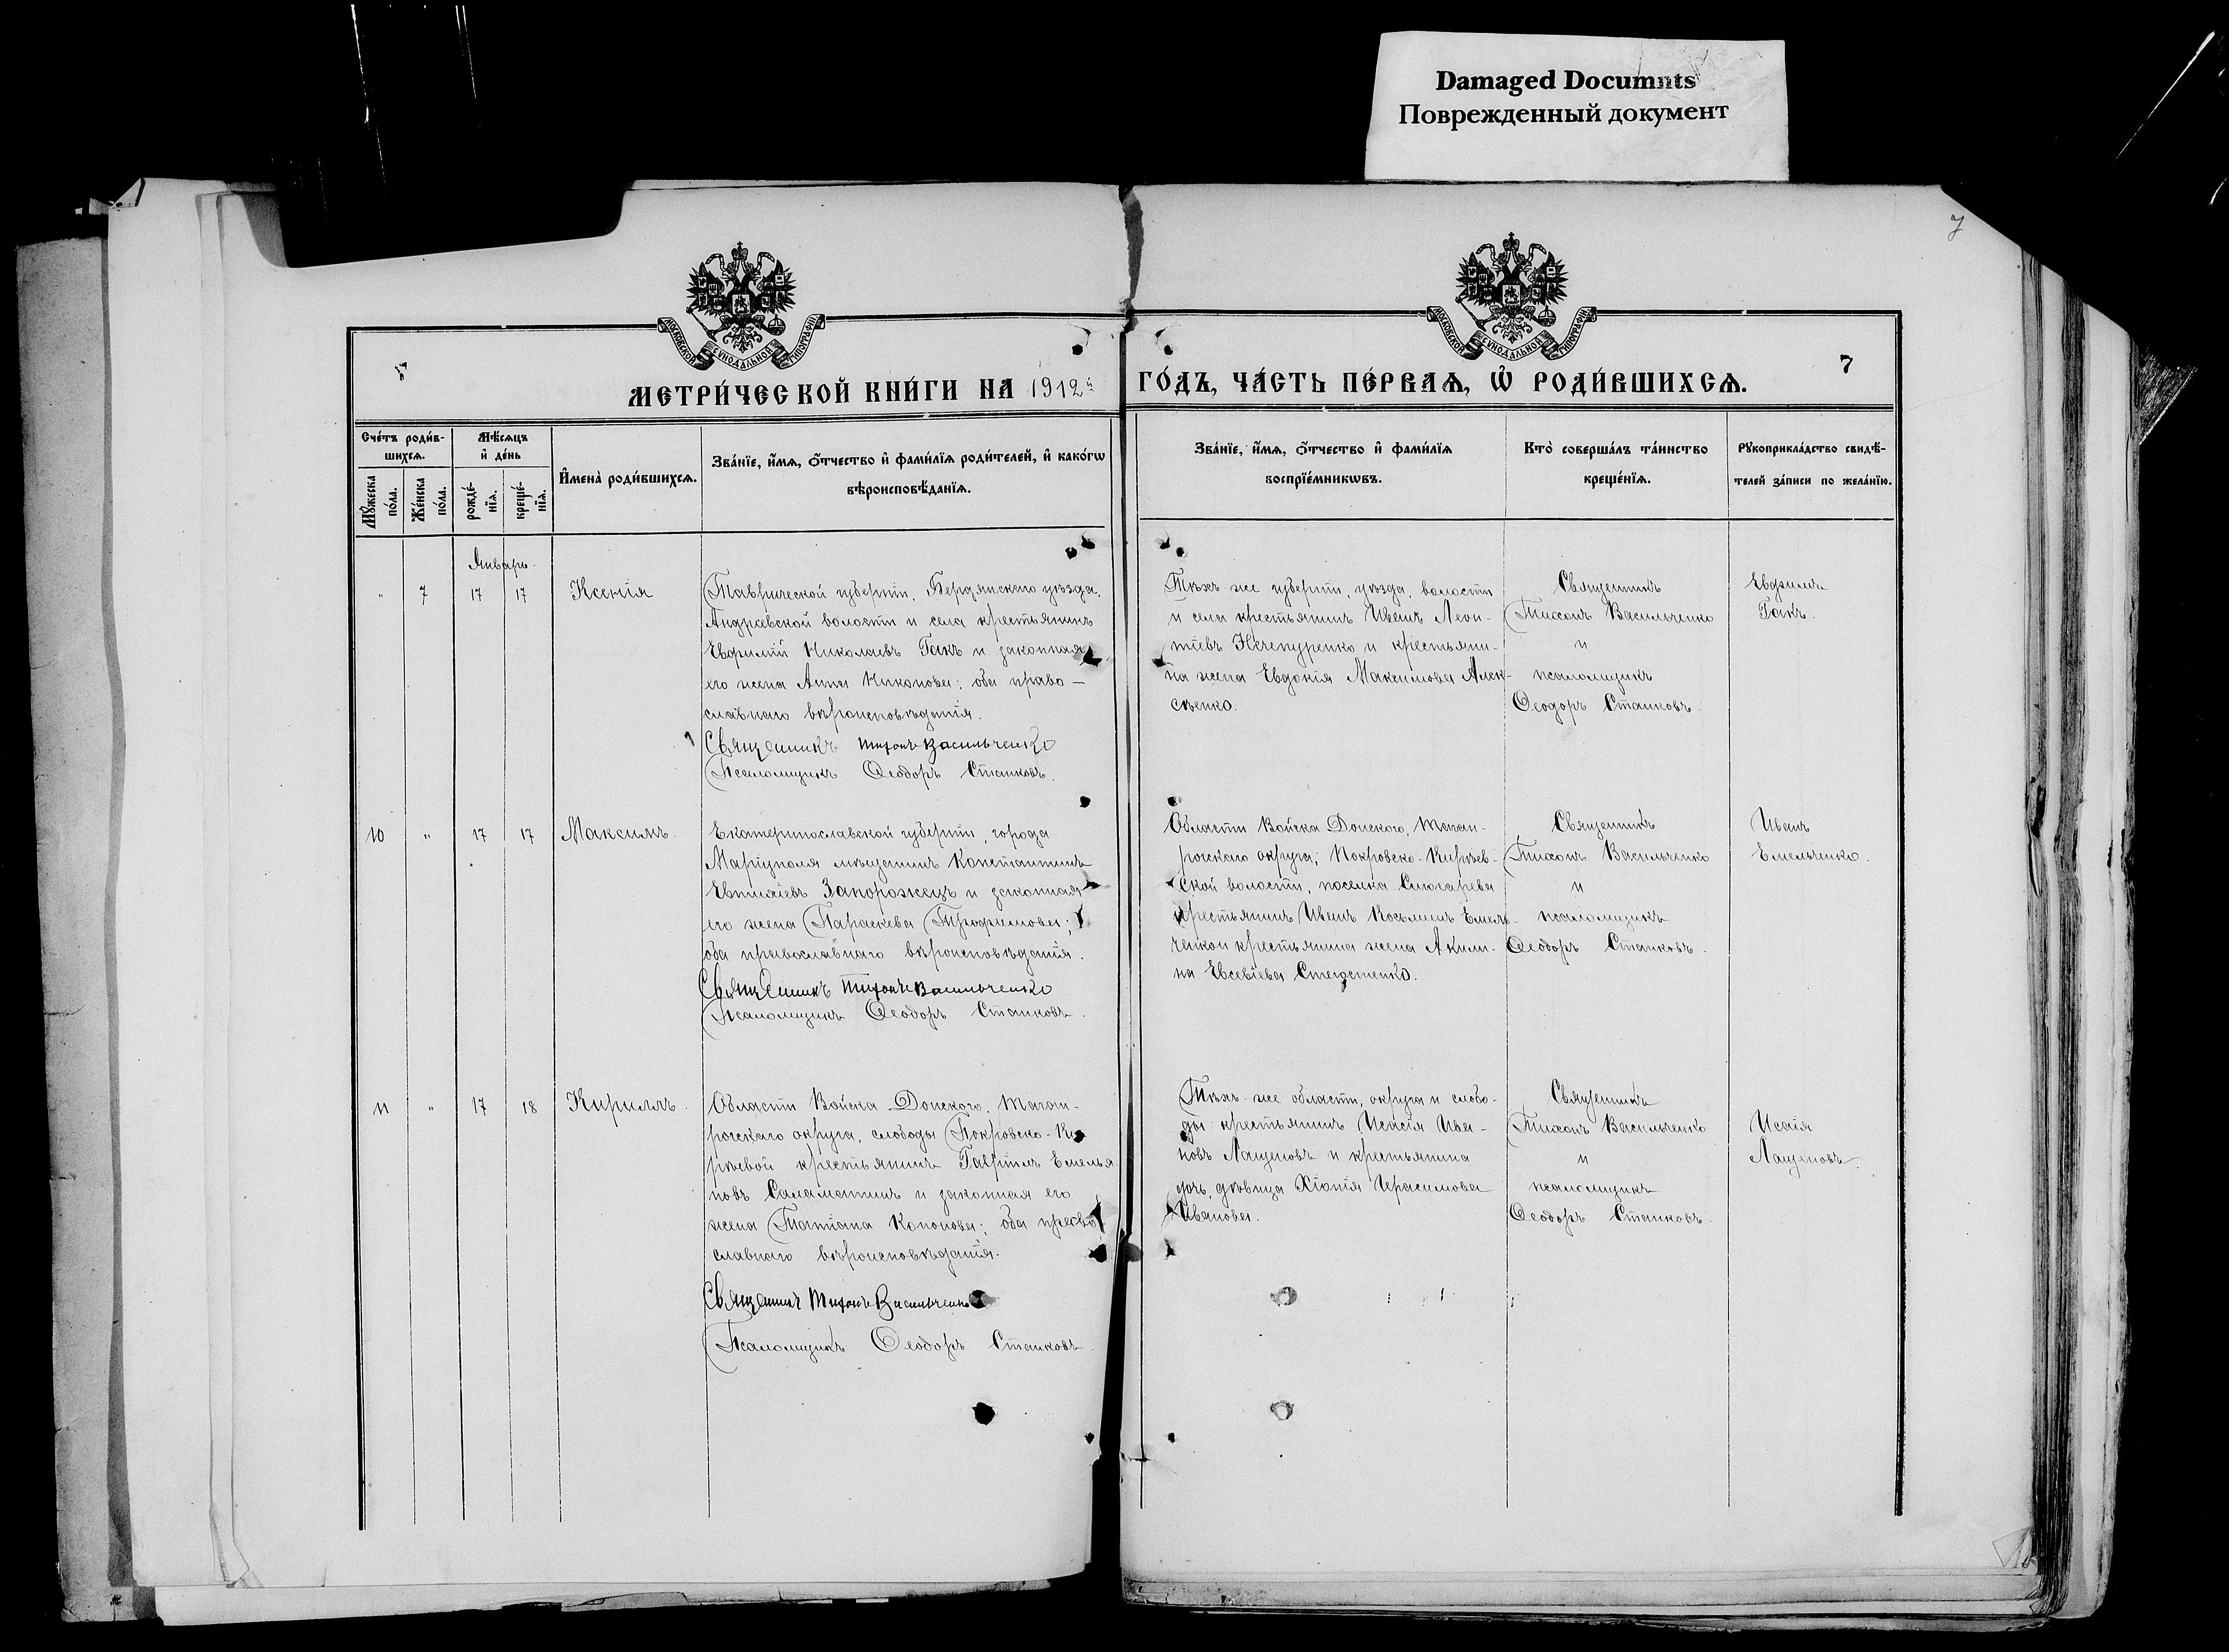 Damaged Documnts
Поврежденный документ
7
МОСКОВСКОЙ СѴНОДАЛЬНОЙ ТИПОГРАФІИ
МОСКОВСКОЙ СѴНОДАЛЬНОЙ ТИПОГРАФІИ
7
МЕТРИ́ЧЕСКОЙ КНИ́ГИ НА 1912й ГО́ДЪ, ЧА́СТЬ ПЕ́РВАѦ, Ѡ҆ РОДИ́ВШИХСѦ.
Сче́тъ роди́в-
шихсѧ.
Мꙋ́жеска по́ла.
Же́нска по́ла.
Мѣ́сѧцъ
и҆ де́нь
рожде́-
нїѧ.
креще́-
нїѧ.
И҆мена̀ роди́вшихсѧ.
Зва́нїе, и҆́мѧ, ѻ҆́тчество и҆ фами́лїѧ роди́телей, и҆ како́гѡ
вѣроисповѣ́данїѧ.
Зва́нїе, и҆́мѧ, ѻ҆́тчество и҆ фами́лїѧ
воспрїе́мникѡвъ.
Кто̀ соверша́лъ та́инство
креще́нїѧ.
Рꙋкоприкла́дство свидѣ́-
телей за́писи по жела́нїю.
Январь.
" 7 17 17 Ксенія
Таврической губерніи, Бердянскаго уѣзда,
Андреевской волости и села крестьянинъ
Евфимій Николаевъ Гакъ и законная
его жена Анна Никонова; оба право-
славнаго вѣроисповѣданія.
Священникъ Тихонъ Васильченко
Псаломщикъ Ѳеодоръ Станковъ.
Тѣхъ же губерніи, уѣзда, волости
и села крестьянинъ Иванъ Леон-
тіевъ Нечепуренко и крестьяни-
на жена Евдокія Максимова Алек-
сѣенко.
Священникъ
Тихонъ Васильченко
и
псаломщикъ
Ѳеодоръ Станковъ.
Евфимъ
Гакъ.
10 " 17 17 Максимъ.
Екатеринославской губерніи, города
Маріуполя мѣщанинъ Константинъ
Евтихіевъ Запорожецъ и законная
его жена Параскева Трофимова;
оба православнаго вѣроисповѣданія.
Священникъ Тихонъ Васильченко
Псаломщикъ Ѳеодоръ Станковъ.
Области Войска Донского, Таган-
рогскаго округа, Покровско-Кирѣев-
ской волости, поселка Слюсарева
крестьянинъ Иванъ Косьминъ Емель-
ченко и крестьянина жена Акили-
на Евсевіева Стецченко.
Священникъ
Тихонъ Васильченко
и
псаломщикъ
Ѳеодоръ Станковъ.
Иванъ
Емельченко.
11 " 17 18 Кириллъ.
Области Войска Донского, Таган-
рогскаго округа, слободы Покровско-Ки
рѣевой крестьянинъ Гавріилъ Емелья
новъ Саламатинъ и законная его
жена Татіана Кононова; оба право-
славнаго вѣроисповѣданія.
Священникъ Тихонъ Васильченко
Псаломщикъ Ѳеодоръ Станковъ.
Тѣхъ же области, округа и слобо-
ды крестьянинъ Исаія Ива-
новъ Лащеновъ и крестьянина
дочь, дѣвица Хіонія Герасимова
Иванова.
Священникъ
Тихонъ Васильченко
и
псаломщикъ
Ѳеодоръ Станковъ.
Исаія
Лащеновъ.